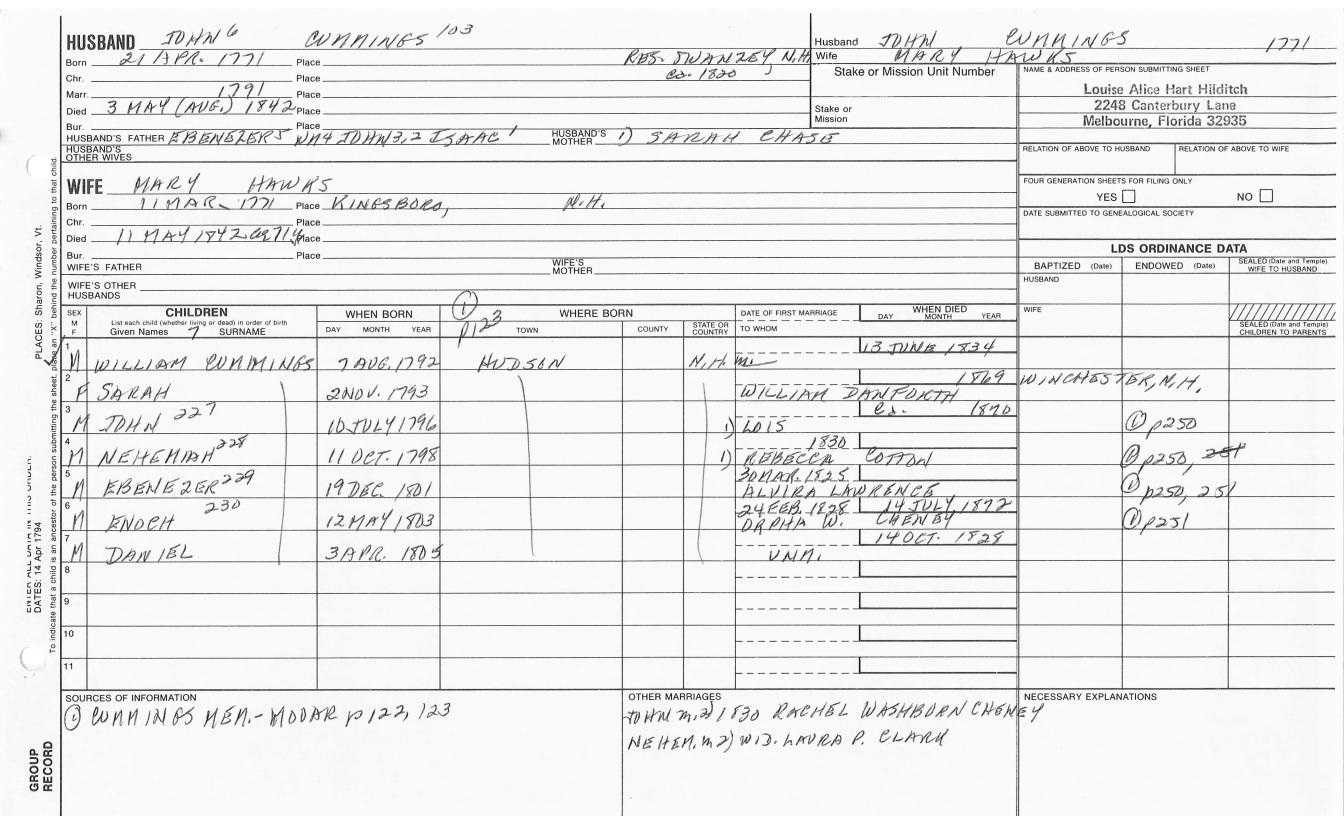 HUSBAND JOHN 6 CUMMINGS 103
Born 21 APR. 1771 Place RES. SWANZEY, N.H.
Chr. Place ca. 1820
Marr. 1791 Place
Died 3 MAY (AUG.) 1842 Place
Bur. Place
HUSBAND'S FATHER EBENEZER5 WM4 JOHN3,2 ISAAC 1 HUSBAND'S MOTHER 1) SARAH CHASE
HUSBAND'S OTHER WIVES
WIFE MARY HAWKS
Born 11 MAR. 1771 Place KINGSBORO, N.H.
Chr. Place
Died 11 MAY 1842 Place
Bur. Place
WIFE'S FATHER WIFE'S MOTHER
WIFE'S OTHER HUSBANDS
Husband JOHN CUMMINGS 1771
Wife MARY HAWKS
Stake or Mission Unit Number
Stake or Mission
NAME & ADDRESS OF PERSON SUBMITTING SHEET
Louise Alice Hart Hilditch
2248 Canterbury Lane
Melbourne, Florida 32935
RELATION OF ABOVE TO HUSBAND RELATION OF ABOVE TO WIFE
FOUR GENERATION SHEETS FOR FILING ONLY
YES NO
DATE SUBMITTED TO GENEALOGICAL SOCIETY
LDS ORDINANCE DATA
BAPTIZED (Date) ENDOWED (Date) SEALED (Date and Temple) WIFE TO HUSBAND
HUSBAND
WIFE
SEALED (Date and Temple) CHILDREN TO PARENTS
SEX M F
CHILDREN
List each child (whether living or dead) in order of birth
Given Names 7 SURNAME
WHEN BORN
DAY MONTH YEAR
1 p123
WHERE BORN
TOWN COUNTY STATE OR COUNTRY
DATE OF FIRST MARRIAGE
TO WHOM
WHEN DIED
DAY MONTH YEAR
1 13 JUNE 1834
M WILLIAM CUMMINGS 7 AUG. 1792 HUDSON N.H.
2 1869 WINCHESTER, N.H.
F SARAH 2 NOV. 1793 WILLIAM DANFORTH
3 ca. 1870
M JOHN 227 10 JULY 1796 1) LOIS 1 p250
4 1830
M NEHEMIAH 228 11 OCT. 1798 1) REBECCA COTTON 1 p250, 251
5 30 MAR. 1825
M EBENEZER 229 19 DEC. 1801 ALVIRA LAWRENCE 1 p250, 251
6 24 FEB. 1828 14 JULY, 1872
M ENOCH 230 12 MAY 1803 ORPHA W. CHENEY 1 p251
7 14 OCT. 1828
M DANIEL 3 APR. 1805 UNM.
8
9
10
11
SOURCES OF INFORMATION
1 CUMMINGS MEM.- MODAR p 122, 123
OTHER MARRIAGES
JOHN m. 2) 1830 RACHEL WASHBURN CHENEY
NEHEM. m 2) WID. LAURA P. CLARK
NECESSARY EXPLANATIONS
PLACES: Sharon, Windsor, Vt.
DATES: 14 Apr 1794
To indicate that a child is an ancestor of the person submitting the sheet, place an "X" behind the number pertaining to that child.
GROUP RECORD